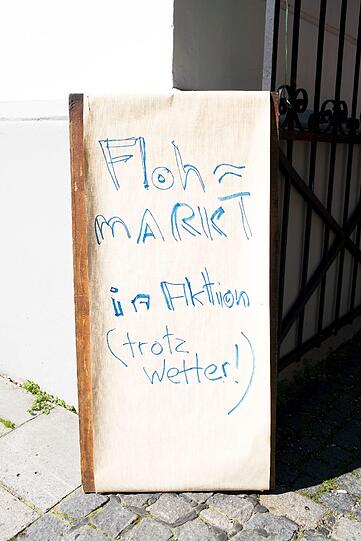 Floh=
MARKT
in Aktion
(trotz
Wetter!)